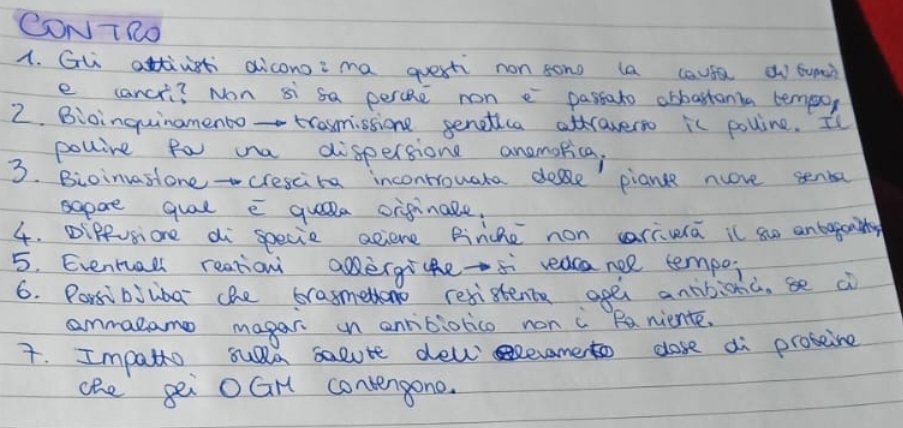 CONTRO
1. Gli attivisti dicono: ma questi non sono la causa di tumori
e cancri? Non si sa perchè non è passato abbastanza tempo,
2. Bioinquinamento → trasmissione genetica attraverso il polline. Il
polline fa una dispersione anemofica,
3. Bioinvasione → crescita incontrollata delle piante nuove senza
sapere qual è quella originale,
4. Diffusione di specie aliene finchè non arriverà il suo antagonista,
5. Eventuali reazioni allergiche → si vedrà nel tempo;
6. Possibilità che trasmettano resistenza agli antibiotici, se ci
ammalamo magari un antibiotico non ci fa niente.
7. Impatto sulla salute dell' elevamento dose di proteine
che gli OGM contengono.